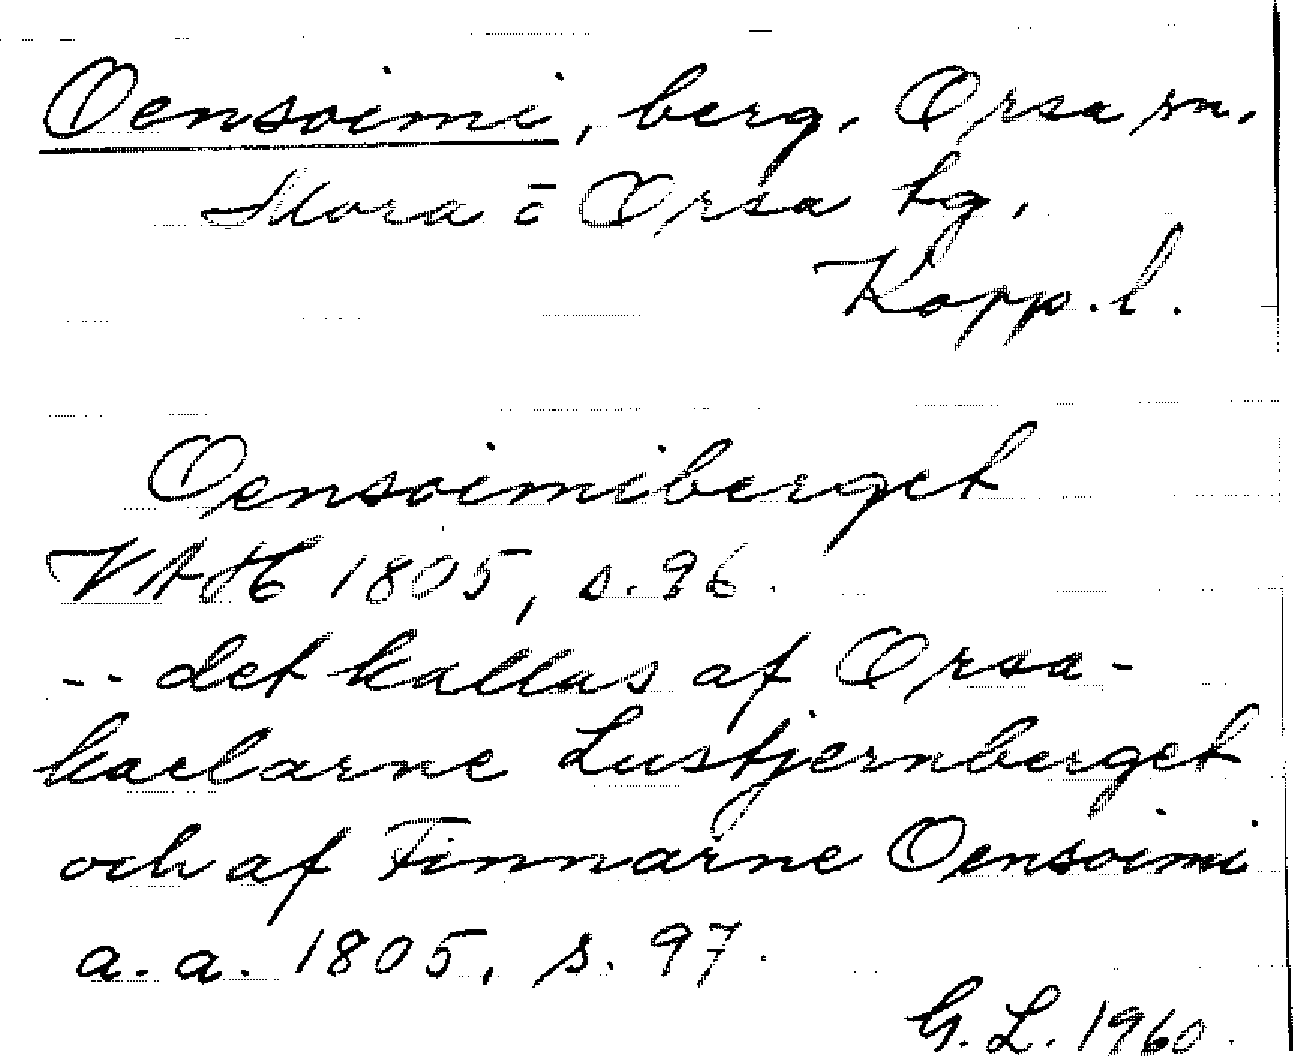 Oensoimi, berg. Orsa sn.
Mora o Orsa tg.
Kopp. l.
Oensoimiberget
VAH 1805, s. 96.
-- det kallas af Orsa-
kaelarne Lustjernberget
och af Finnarne Oensoimi
a. a. 1805, s. 97.
G. L. 1960.